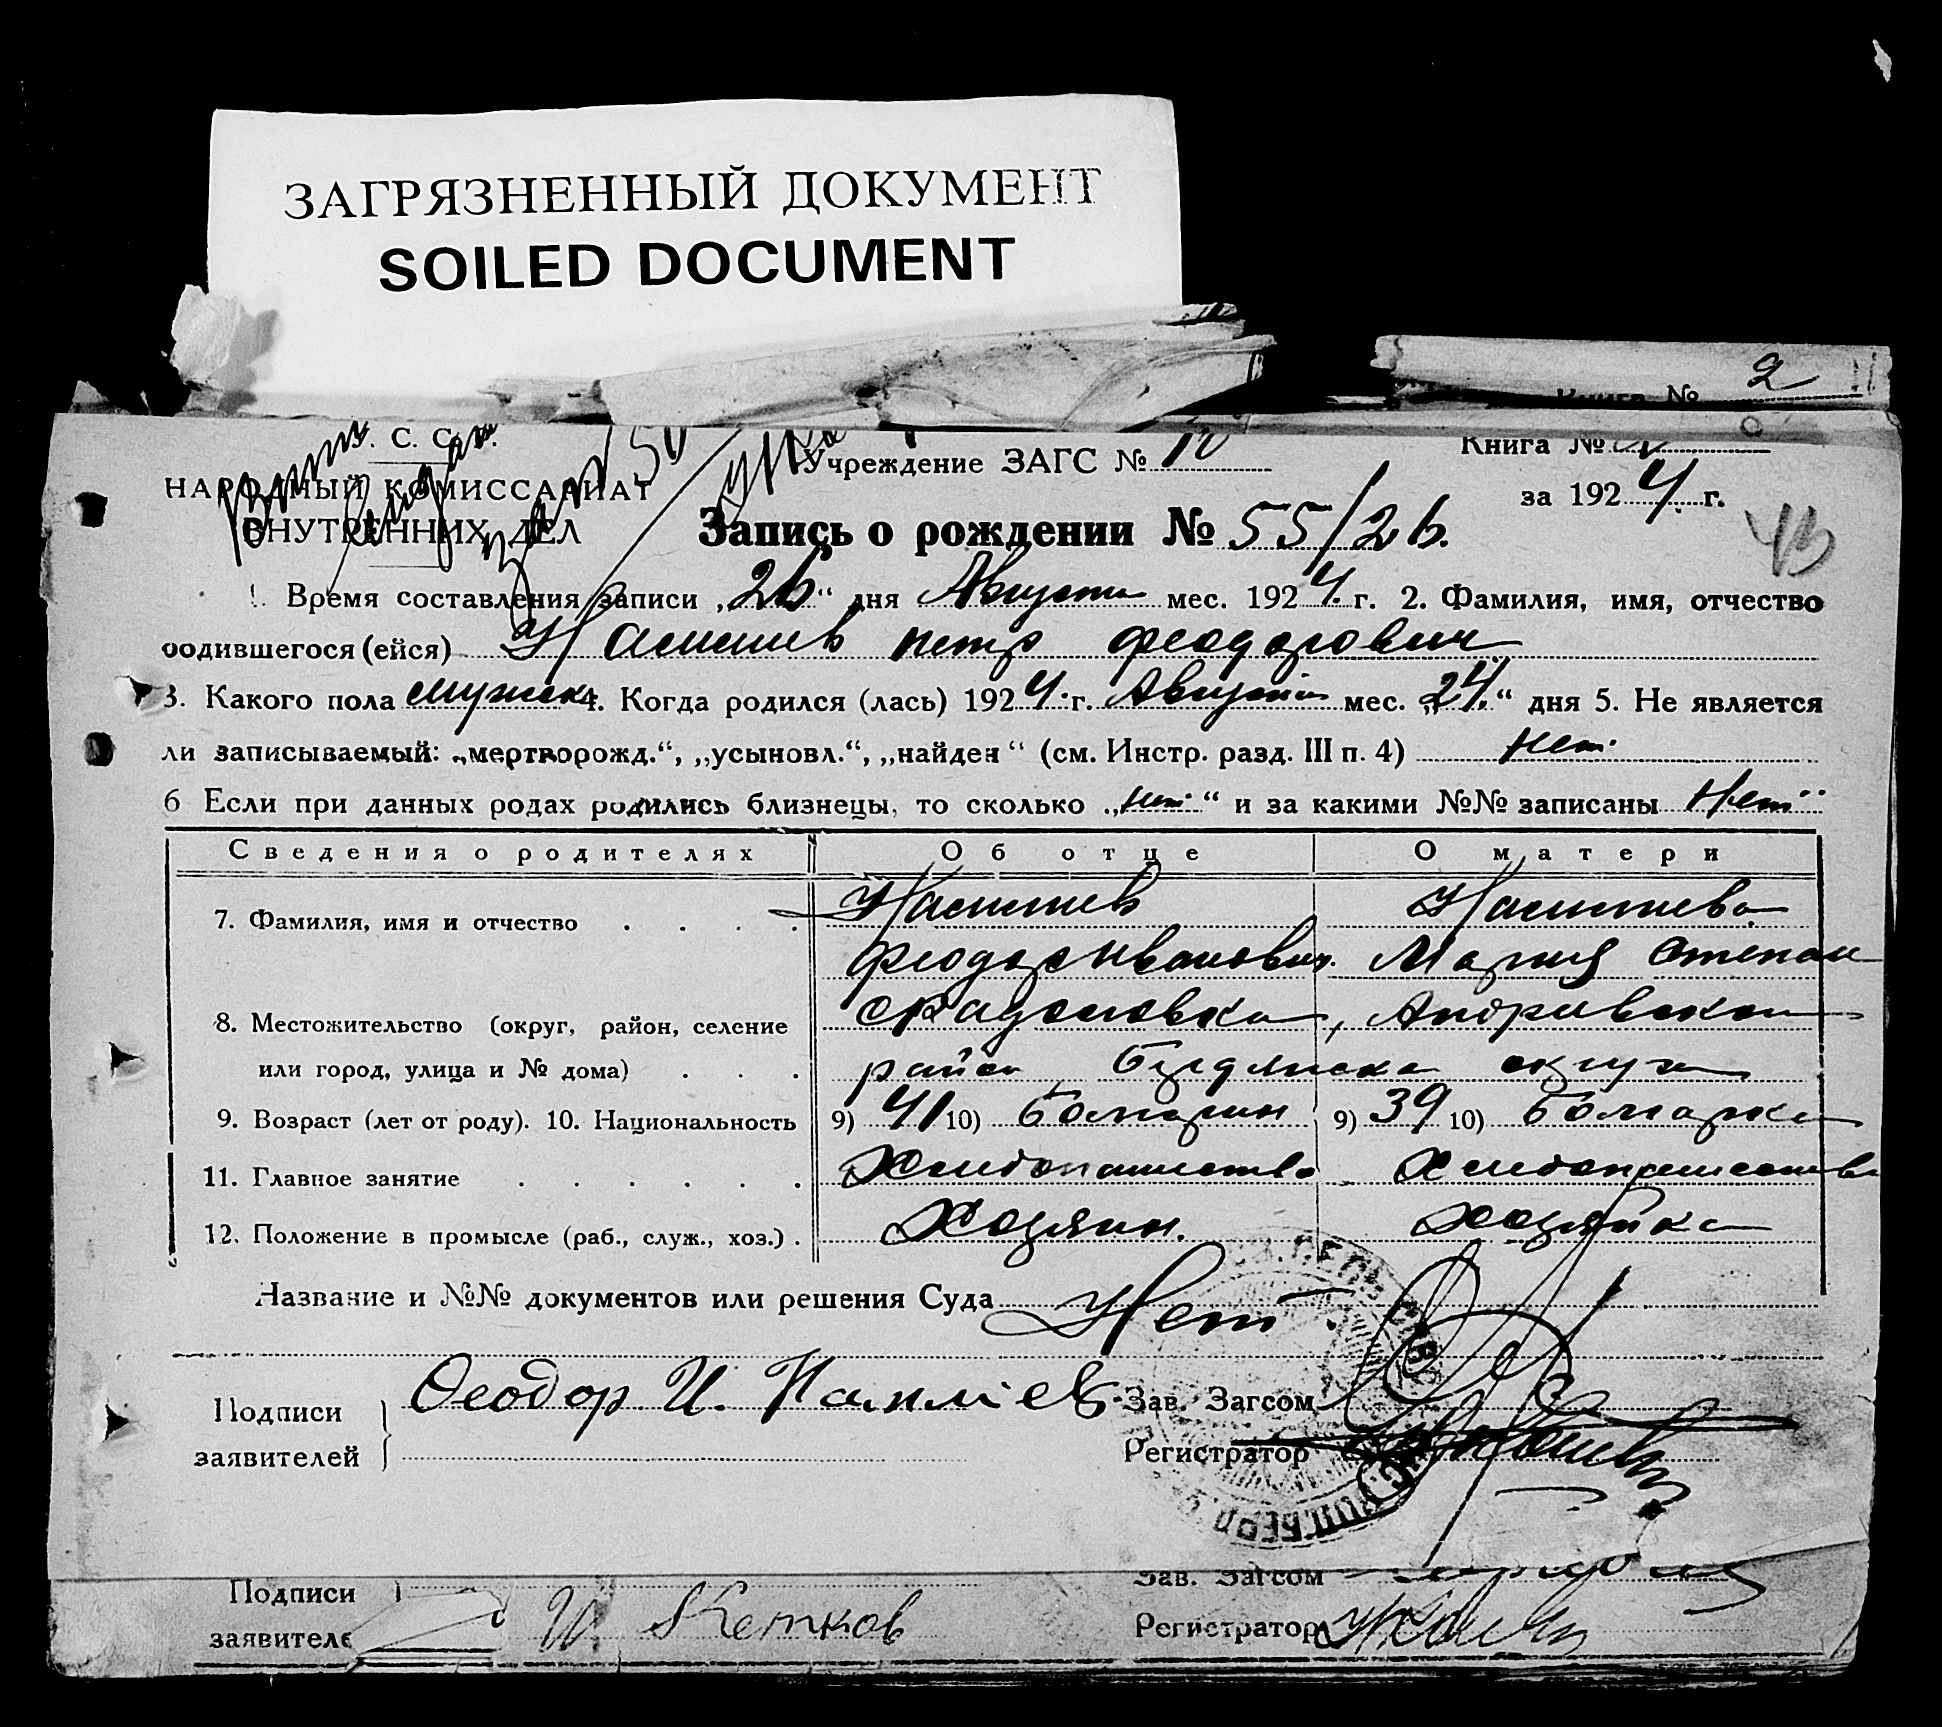 ЗАГРЯЗНЕННЫЙ ДОКУМЕНТ
SOILED DOCUMENT
Книга № 2
С. С.
Учреждение ЗАГС №
Книга №
НАРОДНЫЙ КОМИССАРИАТ
ВНУТРЕННИХ ДЕЛ
за 1924 г.
Запись о рождении № 55/26.
43
1. Время составления записи „26“ дня Августа мес. 1924 г. 2. Фамилия, имя, отчество
родившегося (ейся) петр феодорович
3. Какого пола мужск 4. Когда родился (лась) 1924 г. Августа мес. „24.“ дня 5. Не является
ли записываемый: „мертворожд.“, „усыновл.“, „найден“ (см. Инстр. разд. III п. 4) нет
6 Если при данных родах родились близнецы, то сколько „нет“ и за какими №№ записаны Нет
Сведения о родителях Об отце О матери
7. Фамилия, имя и отчество
феодор Иванович Мария Степан
8. Местожительство (округ, район, селение
или город, улица и № дома) район округа
9. Возраст (лет от роду). 10. Национальность 9) 41 10) Болгарин 9) 39 10) Болгарка
11. Главное занятие Хлебопашество Хлебопашество
12. Положение в промысле (раб., служ., хоз.) Хозяин. хозяйка
Название и №№ документов или решения Суда Нет
Подписи заявителей Феодор И. Зав. Загсом
Регистратор
Подписи Зав. Загсом
заявителе Регистратор